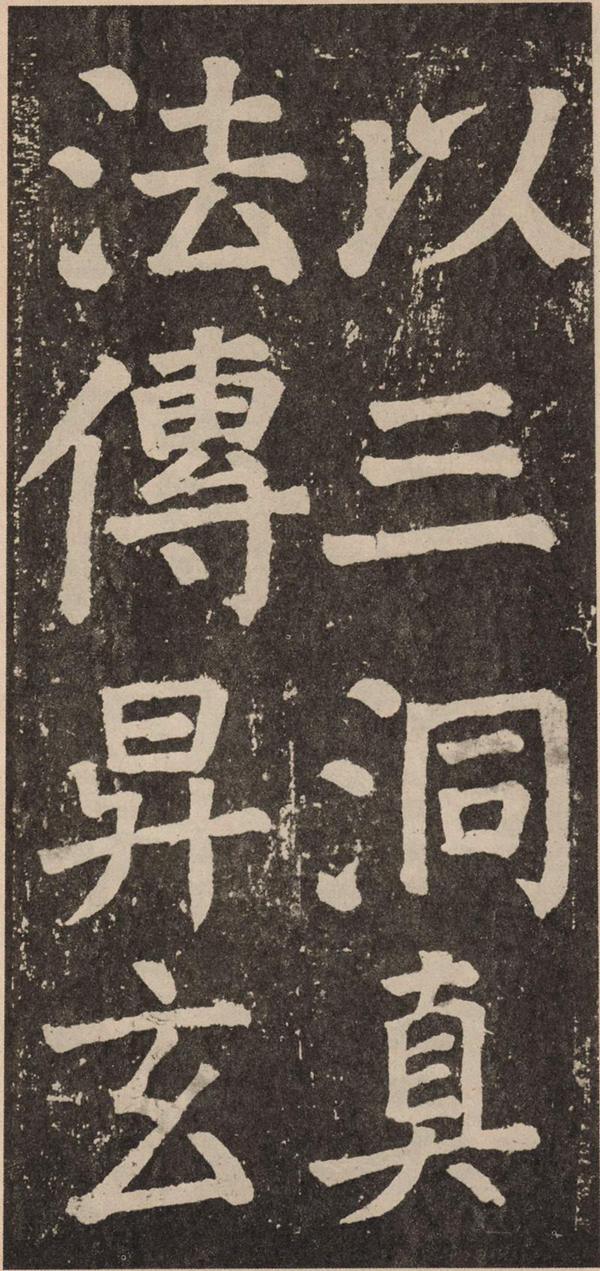 以三洞真
法傳昇玄